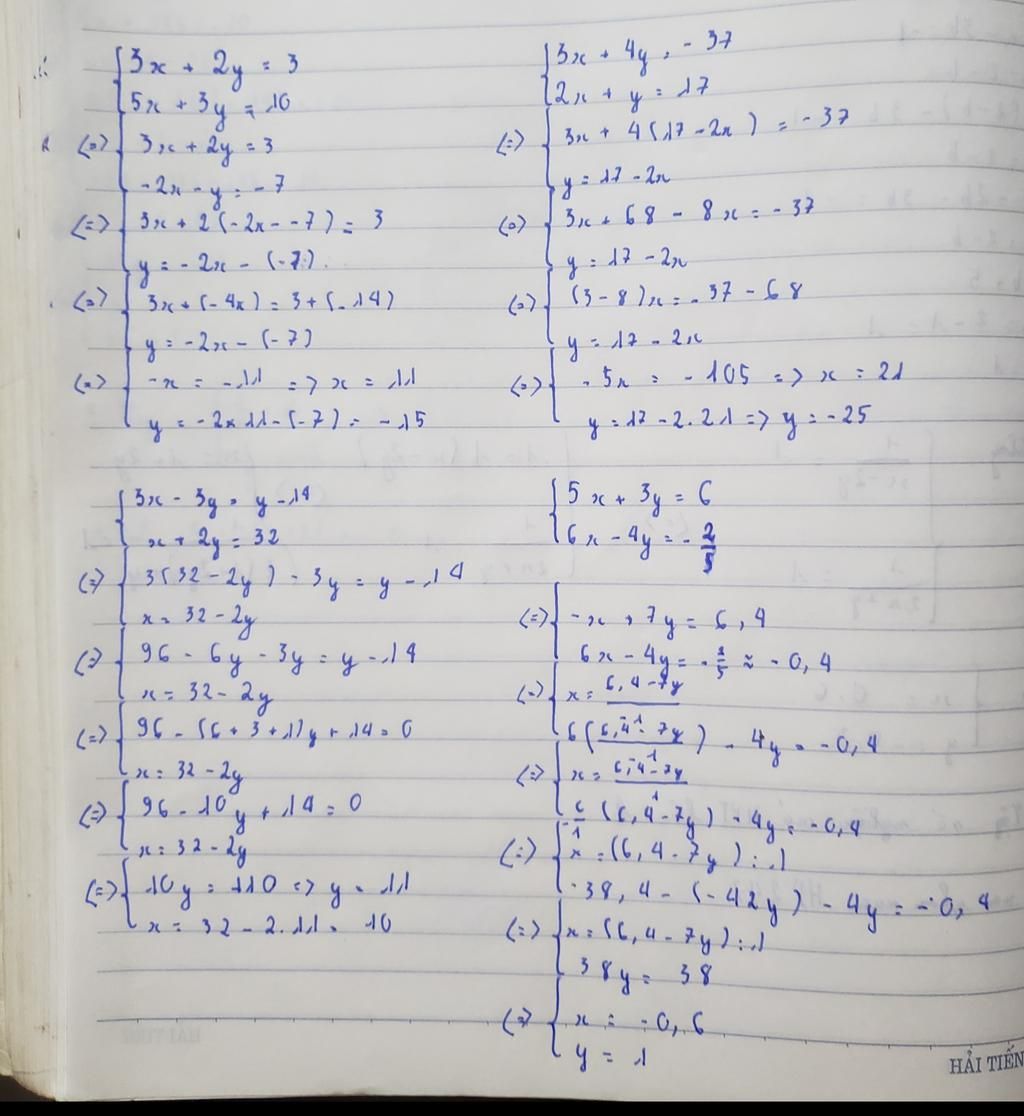 3x + 2y = 3
5x + 3y = 10
(=) 3x + 2y = 3
-2x - y = -7
(=) 3x + 2(-2x - -7) = 3
y = -2x - (-7)
(=) 3x + (-4x) = 3 + (-14)
y = -2x - (-7)
(=) -x = -11 => x = 11
y = -2x11 - (-7) = -15
3x + 4y = -37
2x + y = 17
(=) 3x + 4(17 - 2x) = -37
y = 17 - 2x
(=) 3x + 68 - 8x = -37
y = 17 - 2x
(=) (3 - 8)x = -37 - 68
y = 17 - 2x
(=) -5x = -105 => x = 21
y = 17 - 2.21 => y = -25
3x - 3y = y - 14
x + 2y = 32
(=) 3(32 - 2y) - 3y = y - 14
x = 32 - 2y
(=) 96 - 6y - 3y = y - 14
x = 32 - 2y
(=) 96 - (6 + 3 + 1)y + 14 = 0
x = 32 - 2y
(=) 96 - 10y + 14 = 0
x = 32 - 2y
(=) 10y = 110 => y = 11
x = 32 - 2.11 = 10
5x + 3y = 6
6x - 4y = -2/5
(=) -x + 7y = 6,4
6x - 4y = -2/5 ≈ -0,4
(=) x = (6,4 - 7y)/-1
6((6,4 - 7y)/-1) - 4y = -0,4
(=) x = (6,4 - 7y)/1
-6/1 (6,4 - 7y) - 4y = -0,4
(=) x = (6,4 - 7y) : 1
-38,4 - (-42y) - 4y = -0,4
(=) x = (6,4 - 7y) : 1
38y = 38
(=) x = -0,6
y = 1
HẢI TIẾN